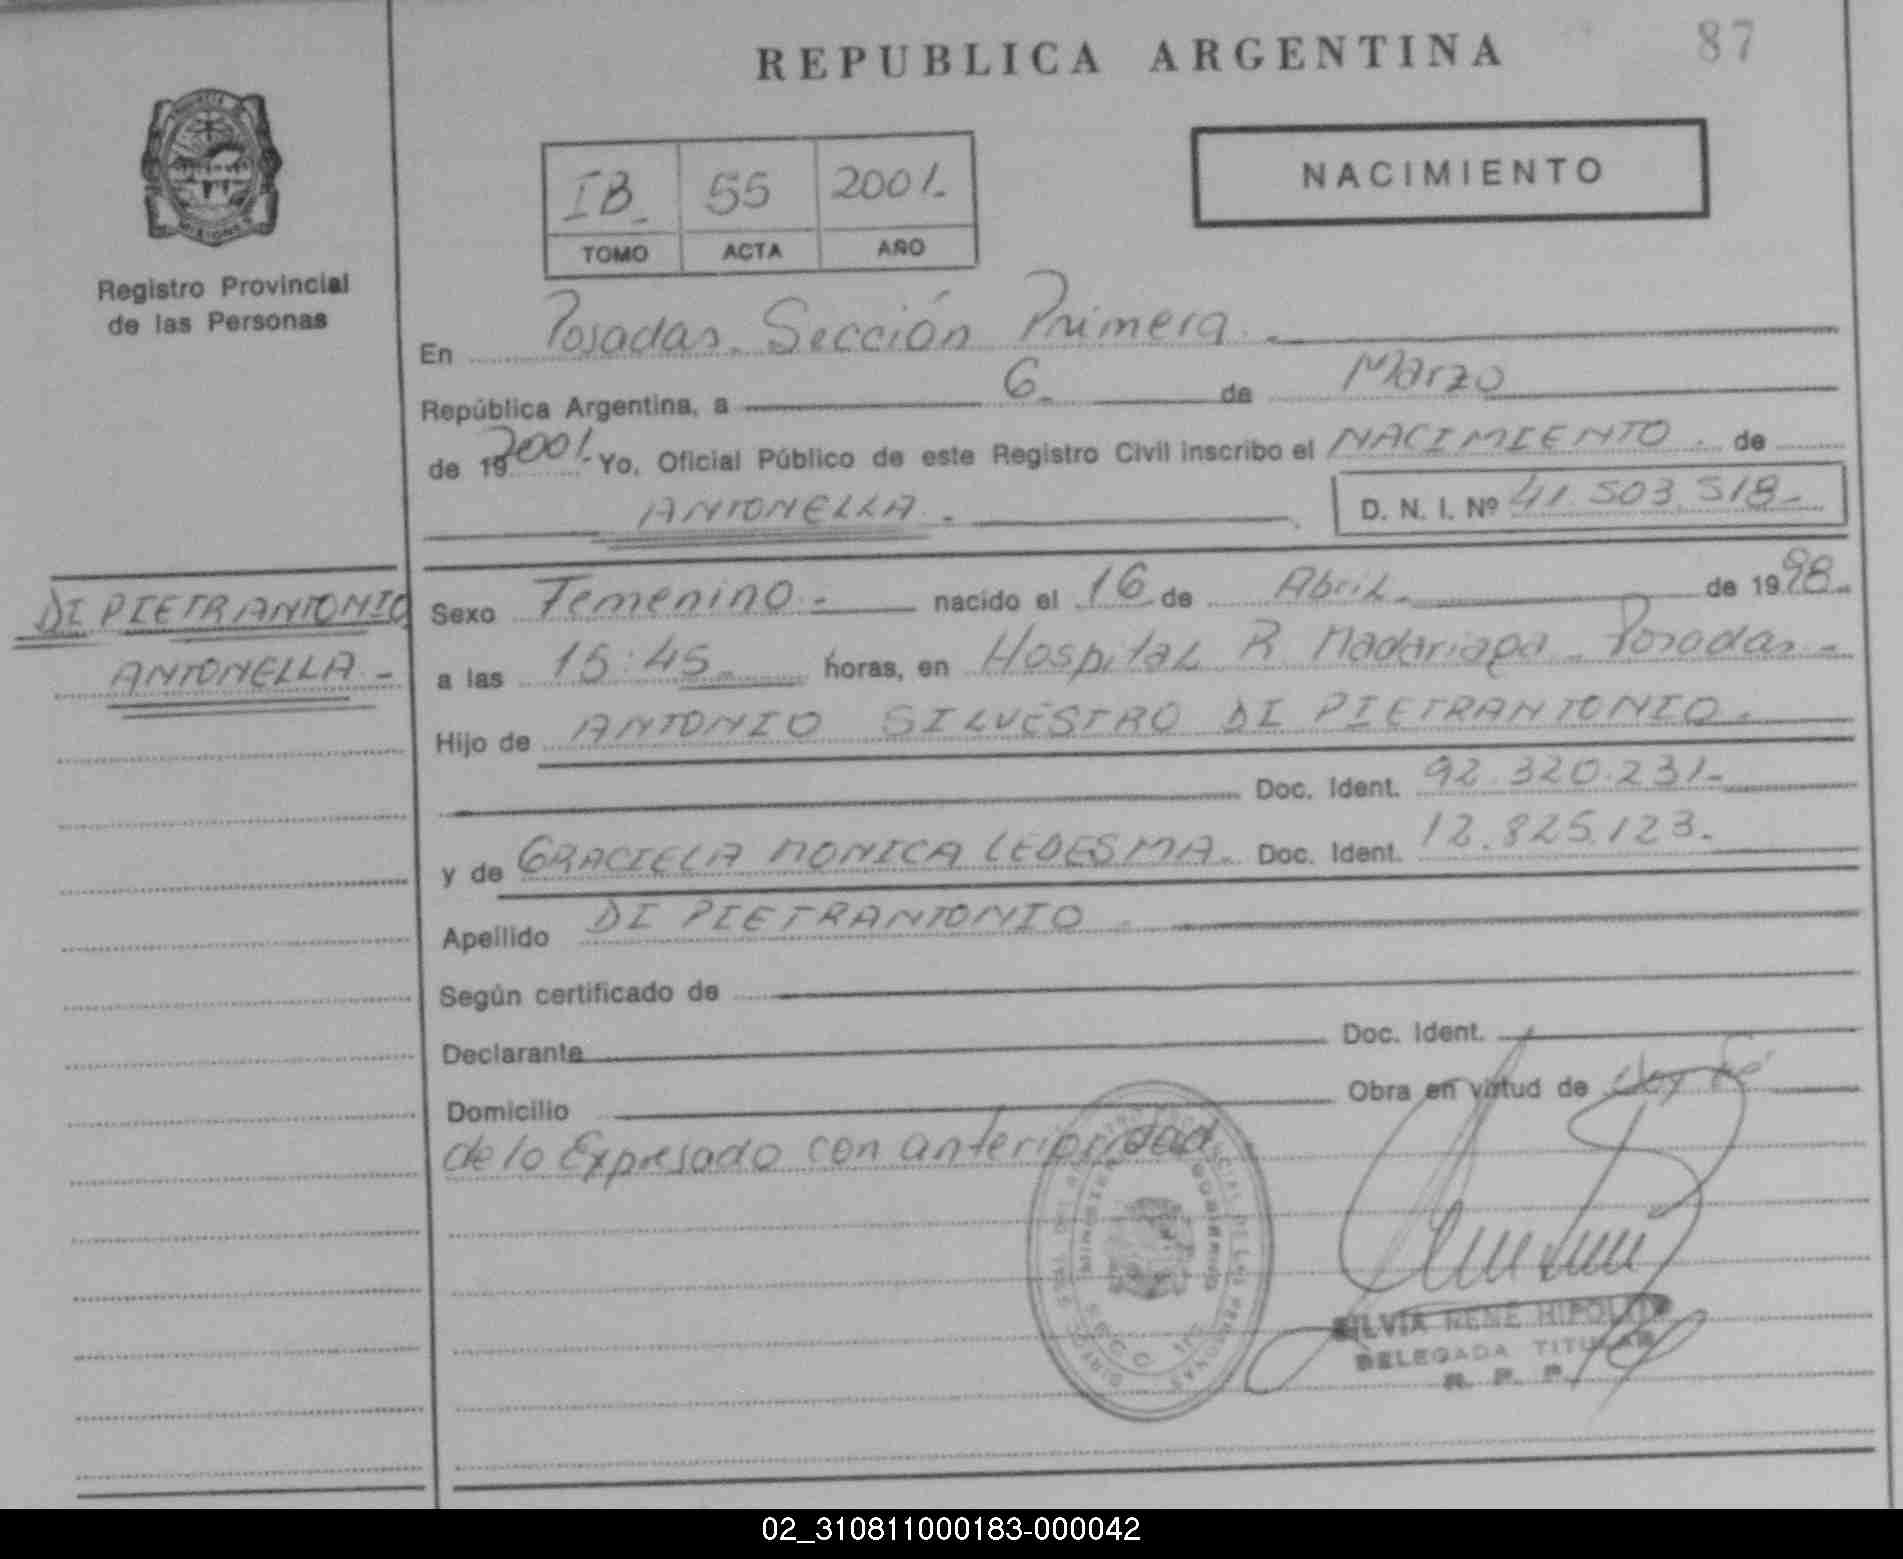 REPUBLICA ARGENTINA
87
Registro Provincial
de las Personas
IB 55 2001.
TOMO ACTA AÑO
NACIMIENTO
En Posadas. Sección Primera.
República Argentina, a 6 de Marzo
de 19 2001. Yo, Oficial Público de este Registro Civil inscribo el NACIMIENTO. de
ANTONELLA.
D. N. I. Nº 41.503.518
DI PIETRANTONIO
ANTONELLA.
Sexo Femenino. nacido el 16 de Abril de 1998.
a las 15:45 horas, en Hospital R Madariaga Posadas
Hijo de ANTONIO SILVESTRO DI PIETRANTONIO.
Doc. Ident. 92.320.231
y de GRACIELA MONICA LEDESMA. Doc. Ident. 12.825.123.
Apellido DI PIETRANTONIO
Según certificado de
Declarante Doc. Ident.
Domicilio Obra en virtud de doy fé
de lo Expresado con anterioridad
SILVIA RENE HIPOLITO
DELEGADA TITULAR
R. P. P.
02_310811000183-000042